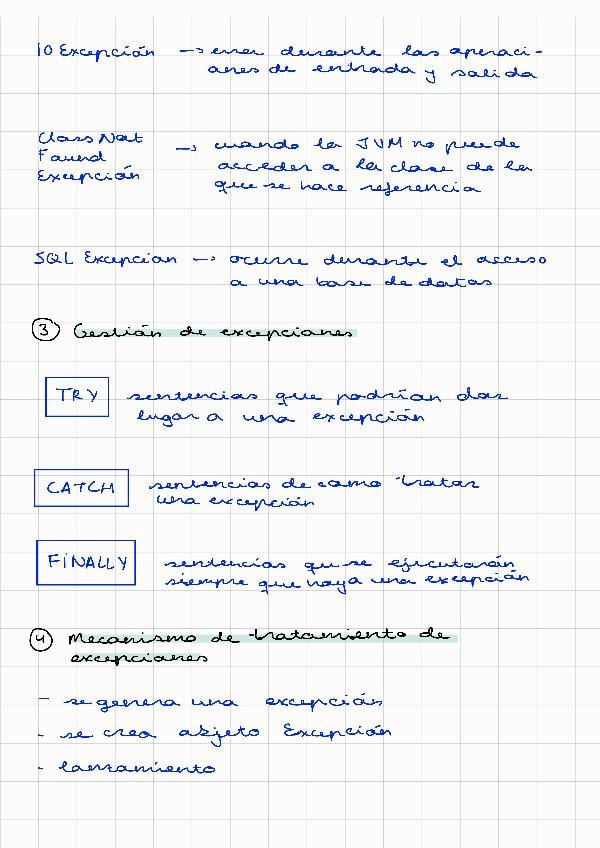 IO Excepción → error durante las operaci-
ones de entrada y salida
Class Not
Found
Excepción
→ cuando la JVM no puede
acceder a la clase de la
que se hace referencia
SQL Excepcion → ocurre durante el acceso
a una base de datos
3 Gestión de excepciones
TRY sentencias que podrían dar
lugar a una excepción
CATCH sentencias de como tratar
una excepción
FINALLY sentencias qu se ejecutarán
siempre que haya una excepción
4 Mecanismo de tratamiento de
excepciones
- se genera una excepción
- se crea objeto Excepción
- lanzamiento